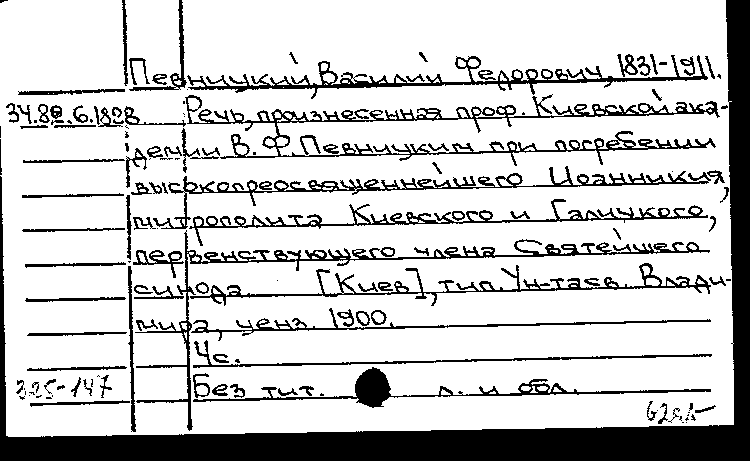 Певницкий, Василий Федорович, 1831-1911.
34.8.6.1828 Речь, произнесенная проф. Киевской ака-
демии В. Ф. Певницким при погребении
высокопреосвященнейшего Иоанникия,
митрополита Киевского и Галицкого,
первенствующего члена Святейшего
синода [Киев], тип. Ун-та св. Влади-
мира, ценз. 1900.
4с.
325-147 Без тит. л. и обл.